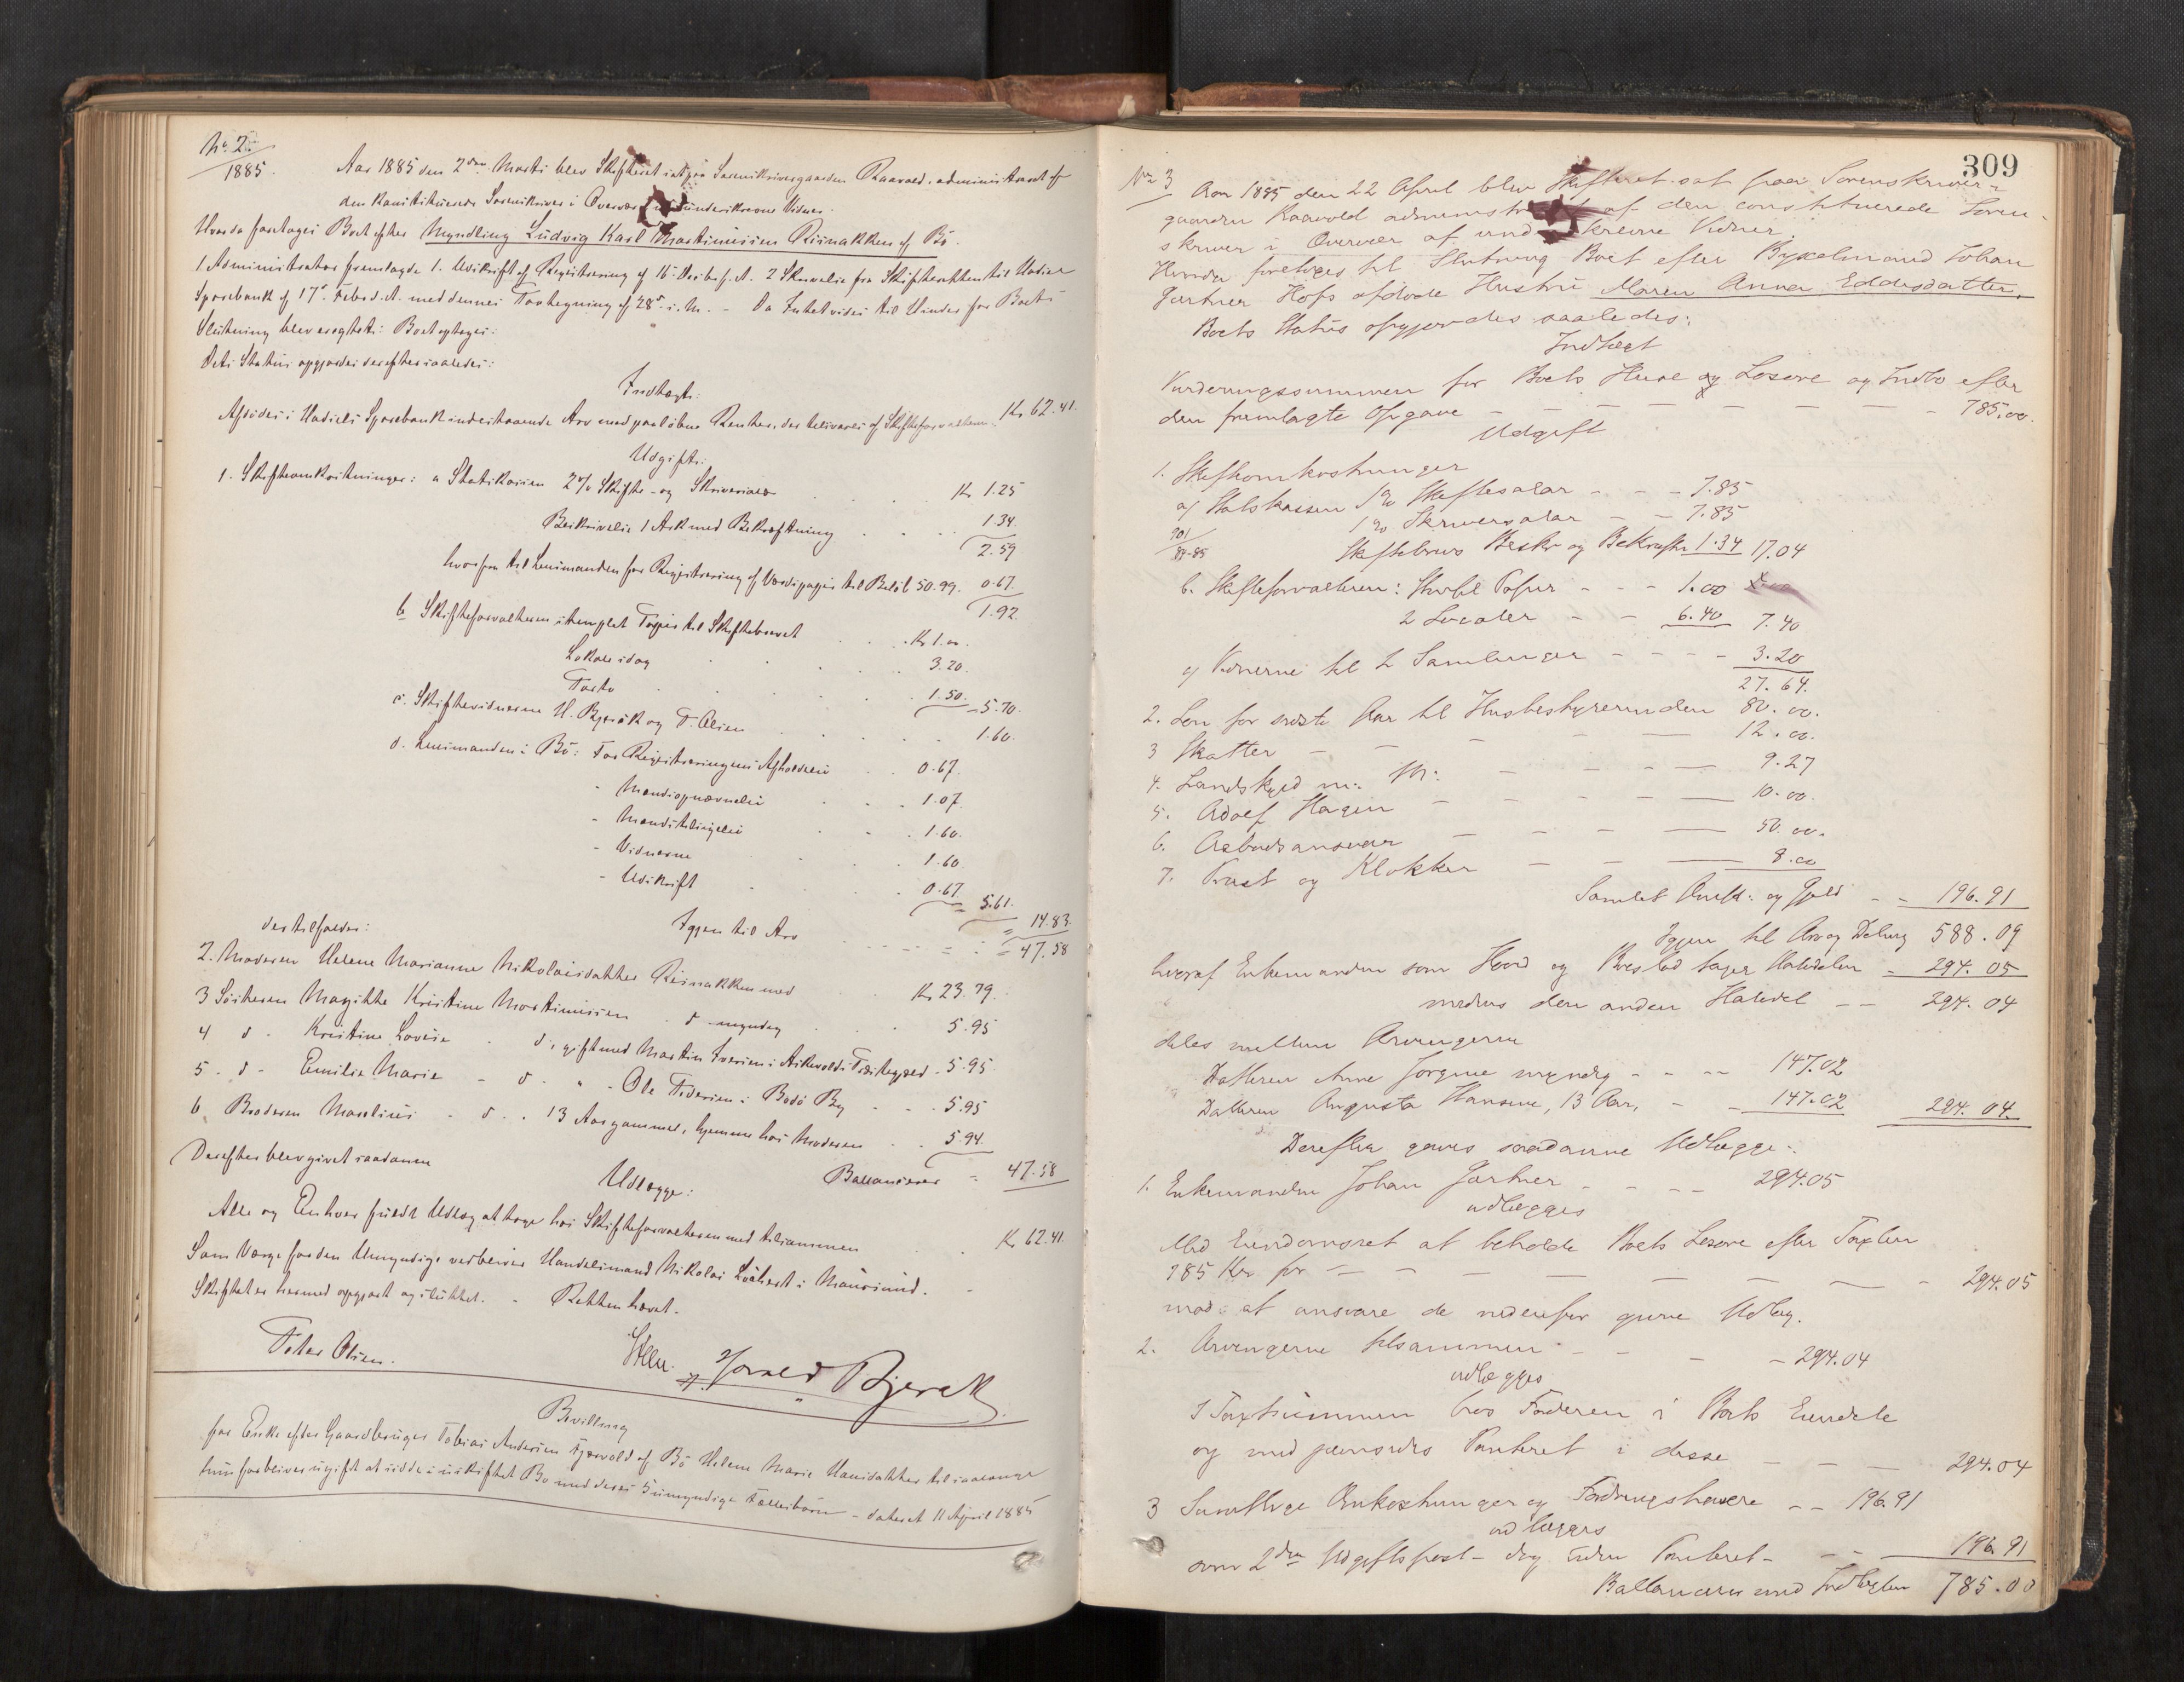 No. 2
1885.
Aar 1885 den 2den Marts blev Skifteret sat paa Sorenskrivergaarden Raavold, administreret af
den konstituerede Sorenskriver i Overvær af underskrevne Vidner.
Hvorda foretoges Boet efter Myndling Ludvig Karl Martinussen Risnakken af Bö.
Administrator fremlagde 1. Udskrift af Registrering af 16 Decbr f. A. 2 Skrivelse fra Skifteretten til Hadsel
Sparebank af 17de Febr. d. A. med dennes Paategning af 28de s. M. - Da Intet vides til Hinder for Boets
Slutning blev eragtet: Boet optages:
Dets Status opgjordes derefter saaledes:
Indtægt.
Afdödes i Hadsels Sparebank indestaaende Arv med paalöbne Renter, der tilsvares af Skifteforvalteren Kr 62.41.
Udgift:
1. Skifteomkostninger: a Statskassen 2 % Skifte- og Skriversalær Kr 1.25
Beskrivelse 1 Ark med Bekræftning 1.34.
2.59
hvorfra til Lensmanden for Registrering af Værdipapir til Belöb 50.99. 0.67
1.92
b Skifteforvalteren stemplet Papir til Skiftebrevet Kr 1.00.
Lokale idag 3.20.
Porto 1.50. 5.70.
c. Skiftevidnerne H. Bjerök og P. Olsen 1.60.
d. Lensmanden i Bö: For Registreringens Afholdelse 0.67.
- Mandsopnævnelse 1.07.
- Mændstilsigelse 1.60.
- Vidnerne 1.60
- Udskrift 0.67 5.61.
14.83.
Igjen til Arv 47.58
der tilfalder:
2. Moderen Helene Marianne Nikolaisdatter Risnakken med Kr 23.79.
3 Sösteren Magitte Kristine Martinussen d. myndig 5.95
4 d - Kristine Lovise d, gift med Martin Iversen i Askevold i 5.95.
5 - d - Emilie Marie - d - " - Ole Pedersen i Bodö By 5.95
6 Broderen Maulius - d - 13 Aar gammel, hjemme hos Moderen 5.94.
Ballancerer 47.58
Derefter blev givet saadanne
Udlægge:
Alle og Enhver fuldt Udlæg at tage hos Skifteforvalteren med tilsammen Kr 62.41.
Som Værge for den Umyndige vedbliver Handelsmand Nikolai i Maursund.
Skiftet er hermed opgjort og sluttet. - Retten hævet.
Peter Olsen.
Bjerök
Bevilling
for Enke efter Gaardbruger Tobias Andersen Fjærvold af Bö Helene Marie Hansdatter til saalænge
hun forbliver ugift at sidde i uskiftet Bo med deres 3 umyndige Fællesbörn - dateret 11 April 1885

309
No 3
Aar 1885 den 22 April blev Skifteret sat paa Sorenskriver-
gaarden Raavold administreret af den constituerede Soren-
skriver i Overvær af underskrevne Vidner.
Hvorda foretoges til Slutning Boet efter Byxelmand Johan
Gartner Hofs afdøde Hustru Maren Anna Eddisdatter.
Boets Status opgjordes saaledes:
Indtægt
Vurderingssummen for Boets Huse og Løsøre og Indbo efter
den fremlagte Opgave - 785.00.
Udgift
1. Skifteomkostninger
a) Statskassen 1% Skiftesalar - - 7.85
1% Skriversalar - - 7.85
901/84-85
Skiftebrevs Beskr og Bekræftn 1.34 17.04
b. Skifteforvalteren: Stemplet Papir - - 1.00
2 Localer - - 6.40 7.40
c) Vidnerne til 2 Samlinger - - - - 3.20
27.64.
2. Løn for sidste Aar til Husbestyrerinden 80.00.
3 Skatter - 12.00.
4. Landskyld m: M: - 9.27
5. Adolf Hagen - 10.00.
6. Aabodsansvar - 50.00.
7. Præst og Klokker - 8.00
Samlet Omk: og Gjæld - - 196.91
Igjen til Arv og Deling 588.09
hvoraf Enkemanden som Hoved og Boeslod tager Halvdelen - 294.05
medens den anden Halvdel - - 294.04
deles mellem Arvingerne
Datteren Anne Jorgine myndig - - - 147.02
Datteren Augusta Hansine, 13 Aar, - - 147.02 294.04.
Derefter gaves saadanne Udlægge:
1. Enkemanden Johan Gartner - - - 294.05
udlægges
Med Eiendomsret at beholde Boets Løsøre efter Taxten
785 Kr for - 294.05
mod at ansvare de nedenfor givne Udlæg.
2. Arvingerne tilsammen - - - 294.04
udlægges
I Taxtsummen hos Faderen i Boets Eiendele
og med Panteret i disse - - 294.04
3 Samtlige Omkostninger og Fordringshavere - - 196.91
udlægges
som 2den Udgiftspost - dog uden Panteret - - 196.91
Ballancerer med Indtægten 785.00